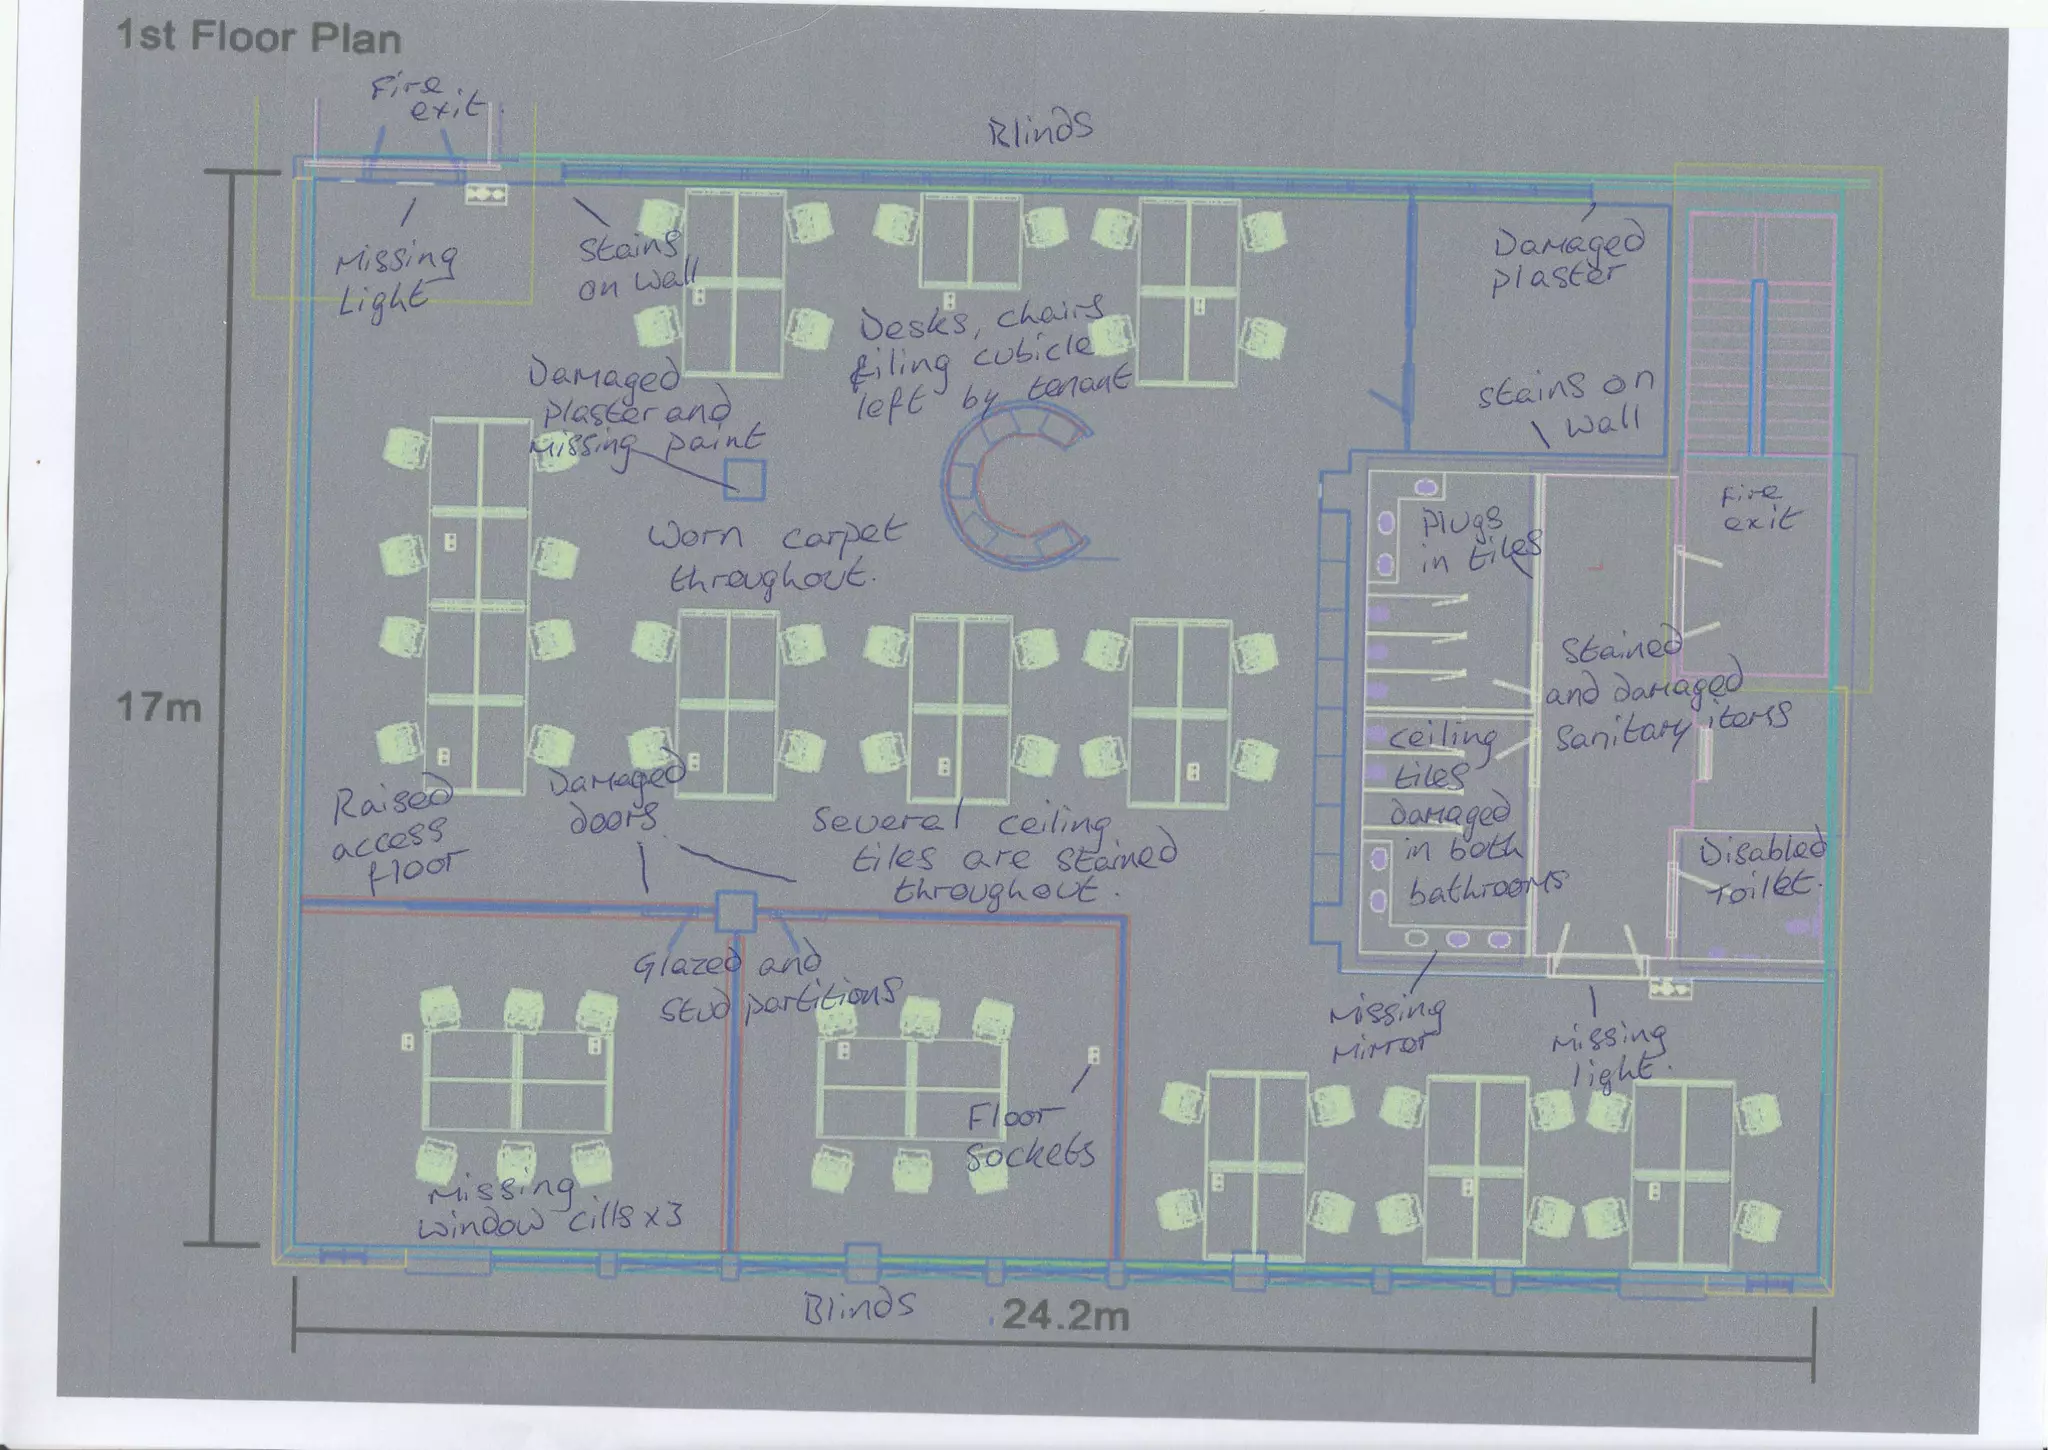 1st Floor Plan
Fire
exit.
Blinds
Missing
Light
Stains
on wall
Damaged
plaster
Desks, chairs
filing cubicle
left by tenant
Damaged
plaster and
missing paint
Stains on
wall
Worn carpet
throughout.
Plugs
in tiles
Fire
exit
17m
Stained
and damaged
sanitary items
Raised
access
floor
Damaged
doors.
Several ceiling
tiles are stained
throughout.
ceiling
tiles
damaged
in both
bathrooms
Disabled
Toilet.
Glazed and
stud partitions
Missing
Mirror
Missing
light.
Floor
Sockets
Missing
window cills x3
Blinds
24.2m